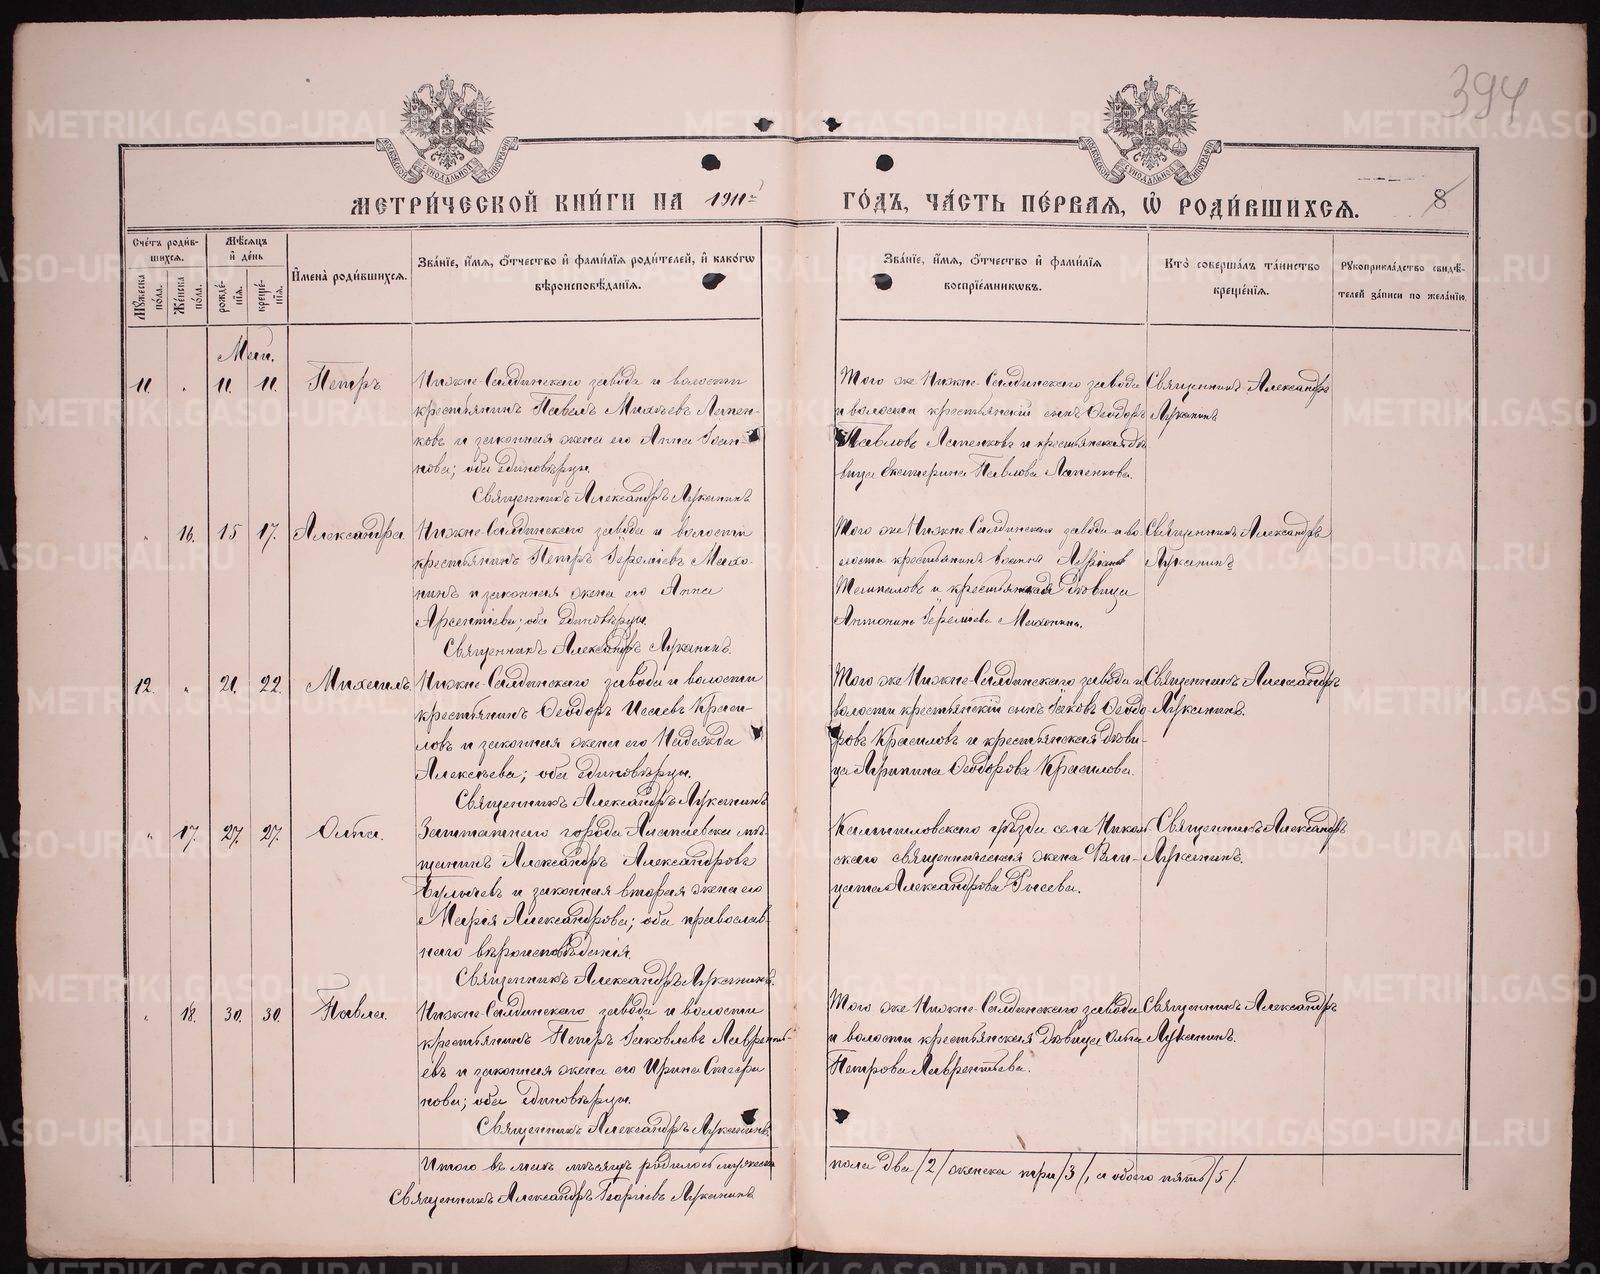 394
МЕТРИ́ЧЕСКОЙ КНИ́ГИ НА 1911й ГО́ДЪ, ЧА́СТЬ ПЕ́РВАЯ, Ѡ РОДИ́ВШИХСЯ. 8
Сче́тъ роди́в-
шихся.
Мꙋ́жеска по́ла.
Же́нска по́ла.
Мѣ́сяцъ и де́нь
рожде́-нїя.
креще́-нїя.
Имена̀ роди́вшихся.
Зва́нїе, и́мя, о́тчество и фами́лїя роди́телей, и како́гѡ
вѣроисповѣ́данїя.
Зва́нїе, и́мя, о́тчество и фами́лїя
воспрїе́мникѡвъ.
Кто̀ соверша́лъ та́инство
креще́нїя.
Рꙋкоприкла́дство свидѣ́-
телей за́писи по жела́нїю.
Май.
11. " 11. 11. Петръ
Нижне-Салдинскаго завода и волости
крестьянинъ Павелъ Михеевъ Лапен-
ковъ и законная жена его Анна Іоан-
нова; оба единовѣрцы.
Священникъ Александръ Луканинъ
Того же Нижне-Салдинскаго завода
и волости крестьянскій сынъ Ѳеодоръ
Павловъ Лапенковъ и крестьянская дѣ-
вица Екатерина Павлова Лапенкова.
Священникъ Александръ
Луканинъ
" 16. 15 17. Александра
Нижне-Салдинскаго завода и волости
крестьянинъ Петръ Іереміевъ Махо-
нинъ и законная жена его Анна
Арсентіева; оба единовѣрцы.
Священникъ Александръ Луканинъ.
Того же Нижне-Салдинскаго завода и во-
лости крестьянинъ
и крестьянская дѣвица
Антонина Іереміева Махонина.
Священникъ Александръ
Луканинъ
12. " 21. 22. Михаилъ.
Нижне-Салдинскаго завода и волости
крестьянинъ Ѳеодоръ Исаевъ Краси-
ловъ и законная жена его Надежда
Алексѣева; оба единовѣрцы.
Священникъ Александръ Луканинъ
Того же Нижне-Салдинскаго завода и
волости крестьянскій сынъ Іаковъ Ѳеодо-
ровъ Красиловъ и крестьянская дѣви-
ца Агрипина Ѳеодорова Красилова.
Священникъ Александръ
Луканинъ.
" 17. 27. 27. Ольга.
Заштатнаго города Алапаевска мѣ-
щанинъ Александръ Александровъ
и законная вторая жена его
Марія Александрова; оба православ-
наго вѣроисповѣданія.
Священникъ Александръ Луканинъ.
Камышловскаго уѣзда села Николь-
скаго священническая жена
Александрова
Священникъ Александръ
Луканинъ.
" 18. 30. 30. Павла.
Нижне-Салдинскаго завода и волости
крестьянинъ Петръ Іаковлевъ Лаврентье-
евъ и законная жена его Ирина Стефа-
нова; оба единовѣрцы.
Священникъ Александръ Луканинъ.
Того же Нижне-Салдинскаго завода
и волости крестьянская дѣвица Ольга
Петрова Лаврентьева.
Священникъ Александръ
Луканинъ.
Итого въ маѣ мѣсяцѣ родилось мужеска пола два /2/ женска три /3/, а обоего пять /5/.
Священникъ Александръ Георгіевъ Луканинъ
METRIKI.GASO-URAL.RU